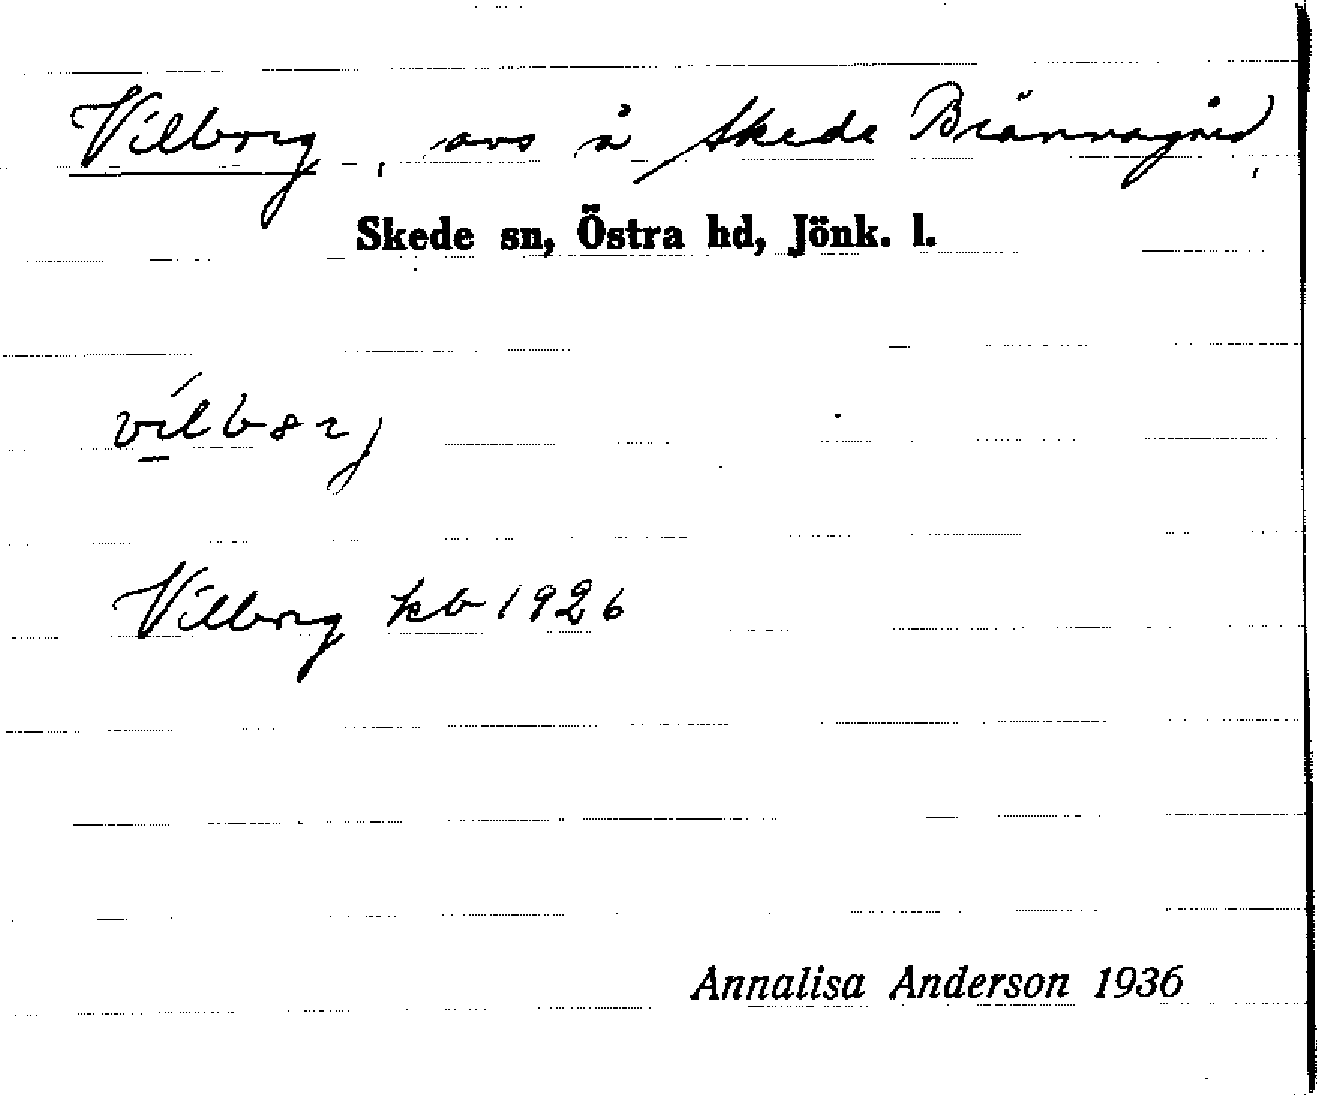 Vilborg, avs å Skede Brännagård,
Skede sn, Östra hd, Jönk. l.
Vilborg kb 1926
Annalisa Anderson 1936